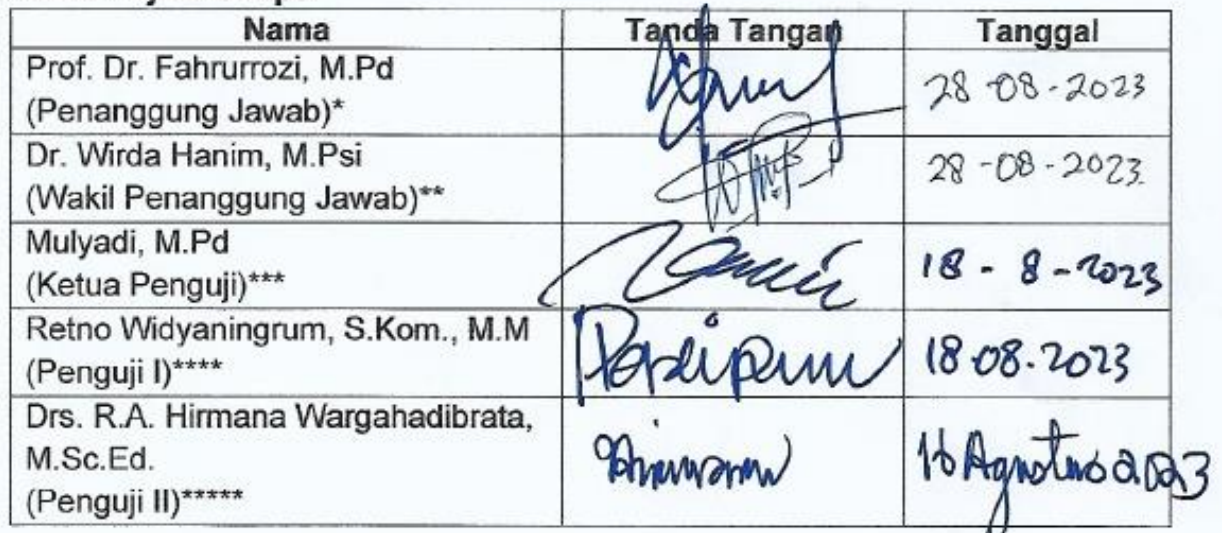 Nama Tanda Tangan Tanggal
Prof. Dr. Fahrurrozi, M.Pd
(Penanggung Jawab)* 28-08-2023
Dr. Wirda Hanim, M.Psi
(Wakil Penanggung Jawab)** 28-08-2023
Mulyadi, M.Pd
(Ketua Penguji)*** 18 - 8 - 2023
Retno Widyaningrum, S.Kom., M.M
(Penguji I)**** 18.08.2023
Drs. R.A. Hirmana Wargahadibrata,
M.Sc.Ed. 16 Agustus 2023
(Penguji II)*****